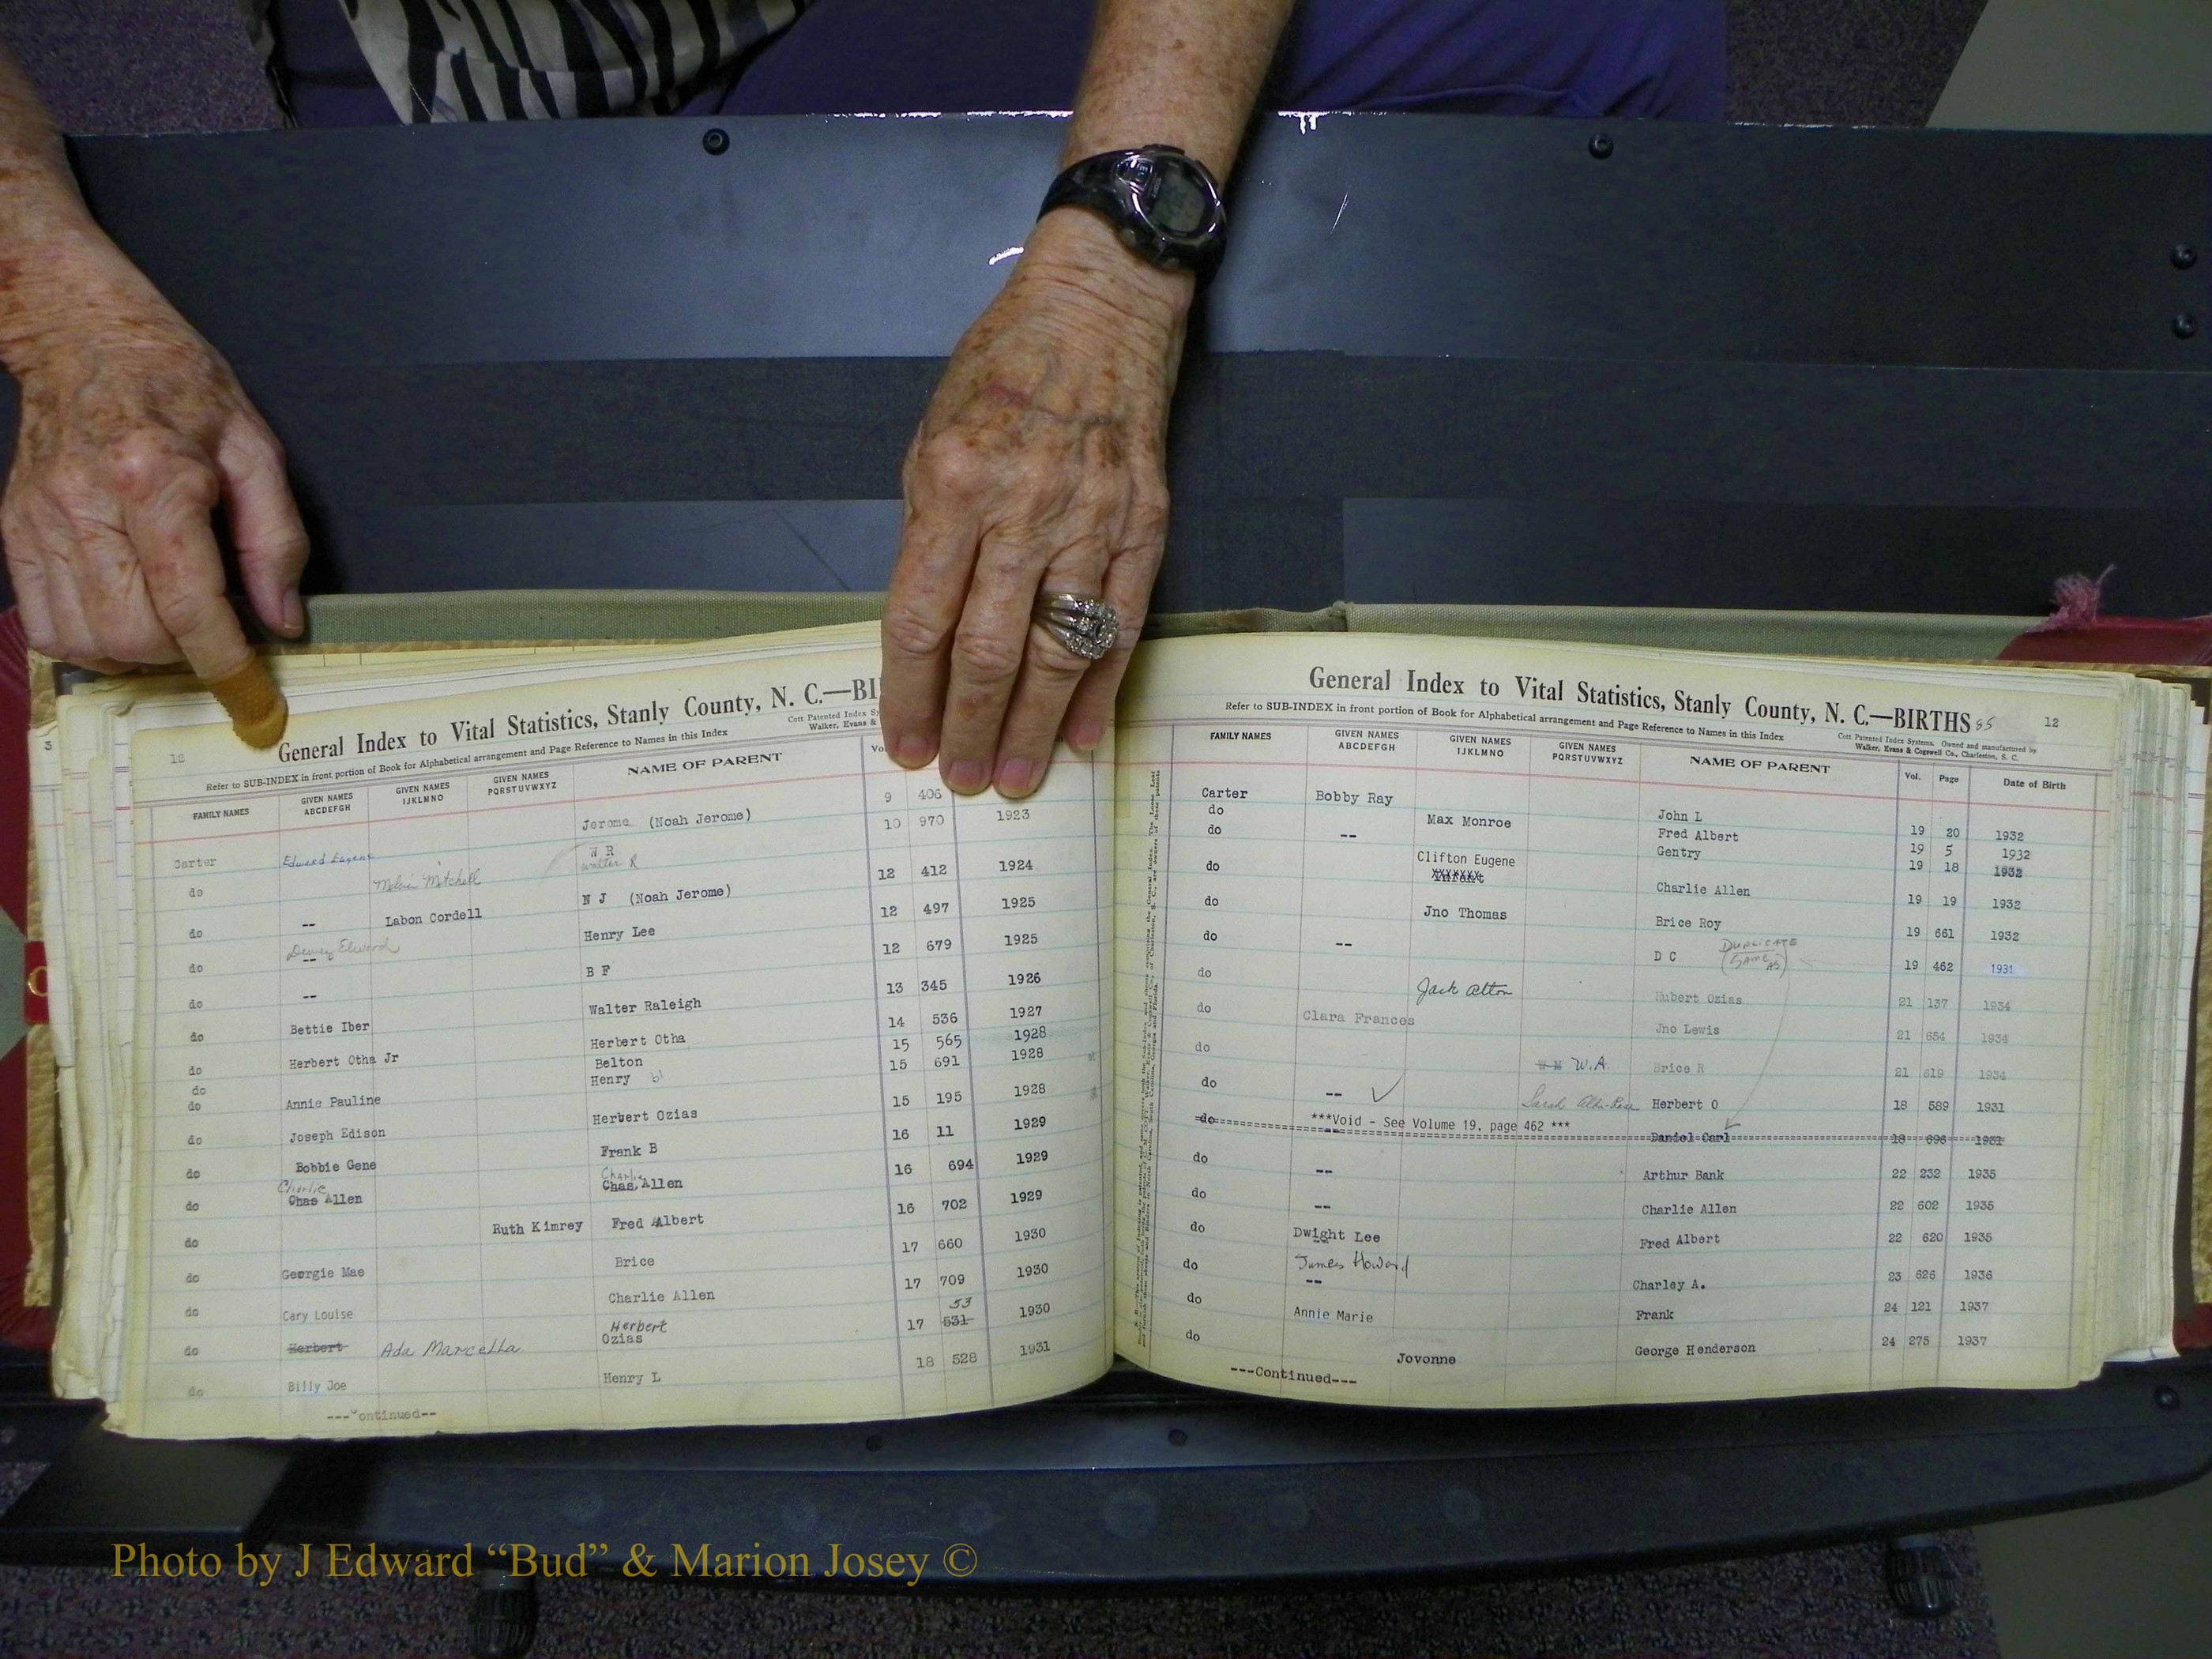 12
General Index to Vital Statistics, Stanly County, N. C.—BI
Refer to SUB-INDEX in front portion of Book for Alphabetical arrangement and Page Reference to Names in this Index
Cott Patented Index Sy
Walker, Evans &
FAMILY NAMES GIVEN NAMES ABCDEFGH GIVEN NAMES IJKLMNO GIVEN NAMES PQRSTUVWXYZ NAME OF PARENT Vo
Carter Edward Eugene Jerome (Noah Jerome) 9 406
do Melvin Mitchell W R walter R 10 970 1923
do -- Labon Cordell N J (Noah Jerome) 12 412 1924
do Dewey Edward -- Henry Lee 12 497 1925
do -- B F 12 679 1925
do Bettie Iber Walter Raleigh 13 345 1926
do Herbert Otha Jr Herbert Otha 14 536 1927
do Belton 15 565 1928
do Annie Pauline Henry 15 691 1928
do Joseph Edison Herbert Ozias 15 195 1928
do Bobbie Gene Frank B 16 11 1929
do Charlie Chas Allen Charlie Chas. Allen 16 694 1929
do Ruth Kimrey Fred Albert 16 702 1929
do Georgie Mae Brice 17 660 1930
do Cary Louise Charlie Allen 17 709 1930
do Herbert Ada Marcella Herbert Ozias 17 53 531 1930
do Billy Joe Henry L 18 528 1931
---Continued---
General Index to Vital Statistics, Stanly County, N. C.—BIRTHS 85 12
Refer to SUB-INDEX in front portion of Book for Alphabetical arrangement and Page Reference to Names in this Index
Cott Patented Index Systems. Owned and manufactured by
Walker, Evans & Cogswell Co., Charleston, S. C.
FAMILY NAMES GIVEN NAMES ABCDEFGH GIVEN NAMES IJKLMNO GIVEN NAMES PQRSTUVWXYZ NAME OF PARENT Vol. Page Date of Birth
Carter Bobby Ray John L 19 20 1932
do Max Monroe Fred Albert 19 5 1932
do -- Gentry 19 18 1932
do Clifton Eugene Infant Charlie Allen 19 19 1932
do Jno Thomas Brice Roy 19 661 1932
do -- D C DUPLICATE (SAME AS) 19 462 1931
do Jack Alton Hubert Ozias 21 137 1934
do Clara Frances Jno Lewis 21 654 1934
do W.A. Brice R 21 619 1934
do -- Sarah Herbert O 18 589 1931
do ***Void - See Volume 19, page 462 *** Daniel Carl 18 696 1931
do -- Arthur Bank 22 232 1935
do -- Charlie Allen 22 602 1935
do Dwight Lee Fred Albert 22 620 1935
do James Howard -- Charley A. 23 626 1936
do Annie Marie Frank 24 121 1937
do Jovonne George Henderson 24 275 1937
---Continued---
Photo by J Edward “Bud” & Marion Josey ©